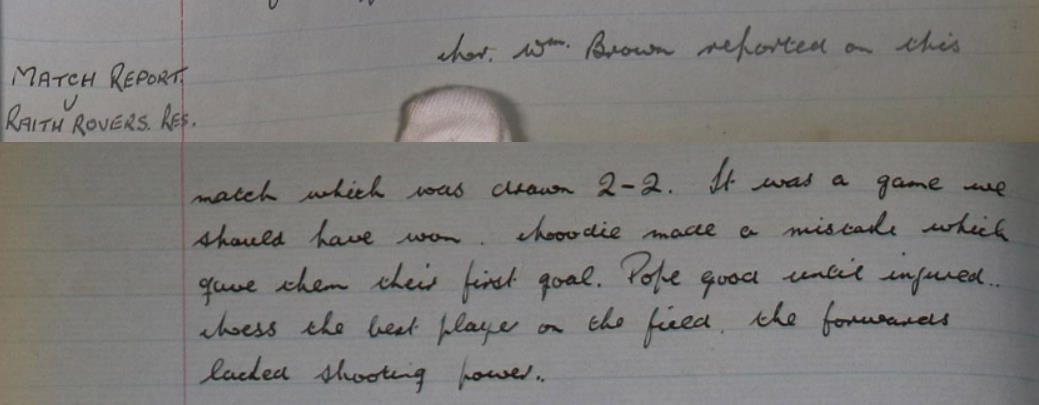 Mr. Wm. Brown reported on this
MATCH REPORT
V
RAITH ROVERS. RES.
match which was drawn 2-2. It was a game we
should have won. Moodie made a mistake which
gave them their first goal. Pope good until injured..
the best player on the field, the forwards
lacked shooting power..